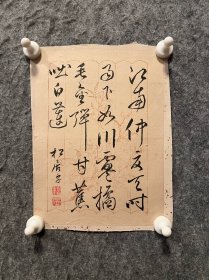 江南仲夏天时
雨下如川盧橘
垂金弹甘蕉
吐白蓮